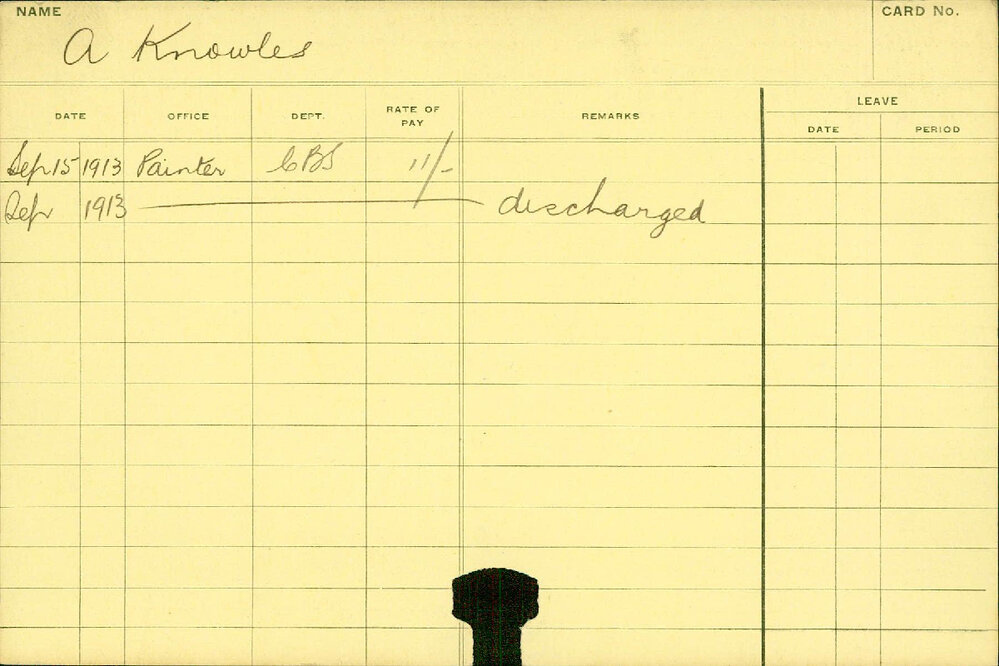 NAME
CARD No.
A Knowles
DATE OFFICE DEPT. RATE OF PAY REMARKS LEAVE
DATE PERIOD
Sep 15 1913 Painter CBS 11/-
Sep 1913 discharged